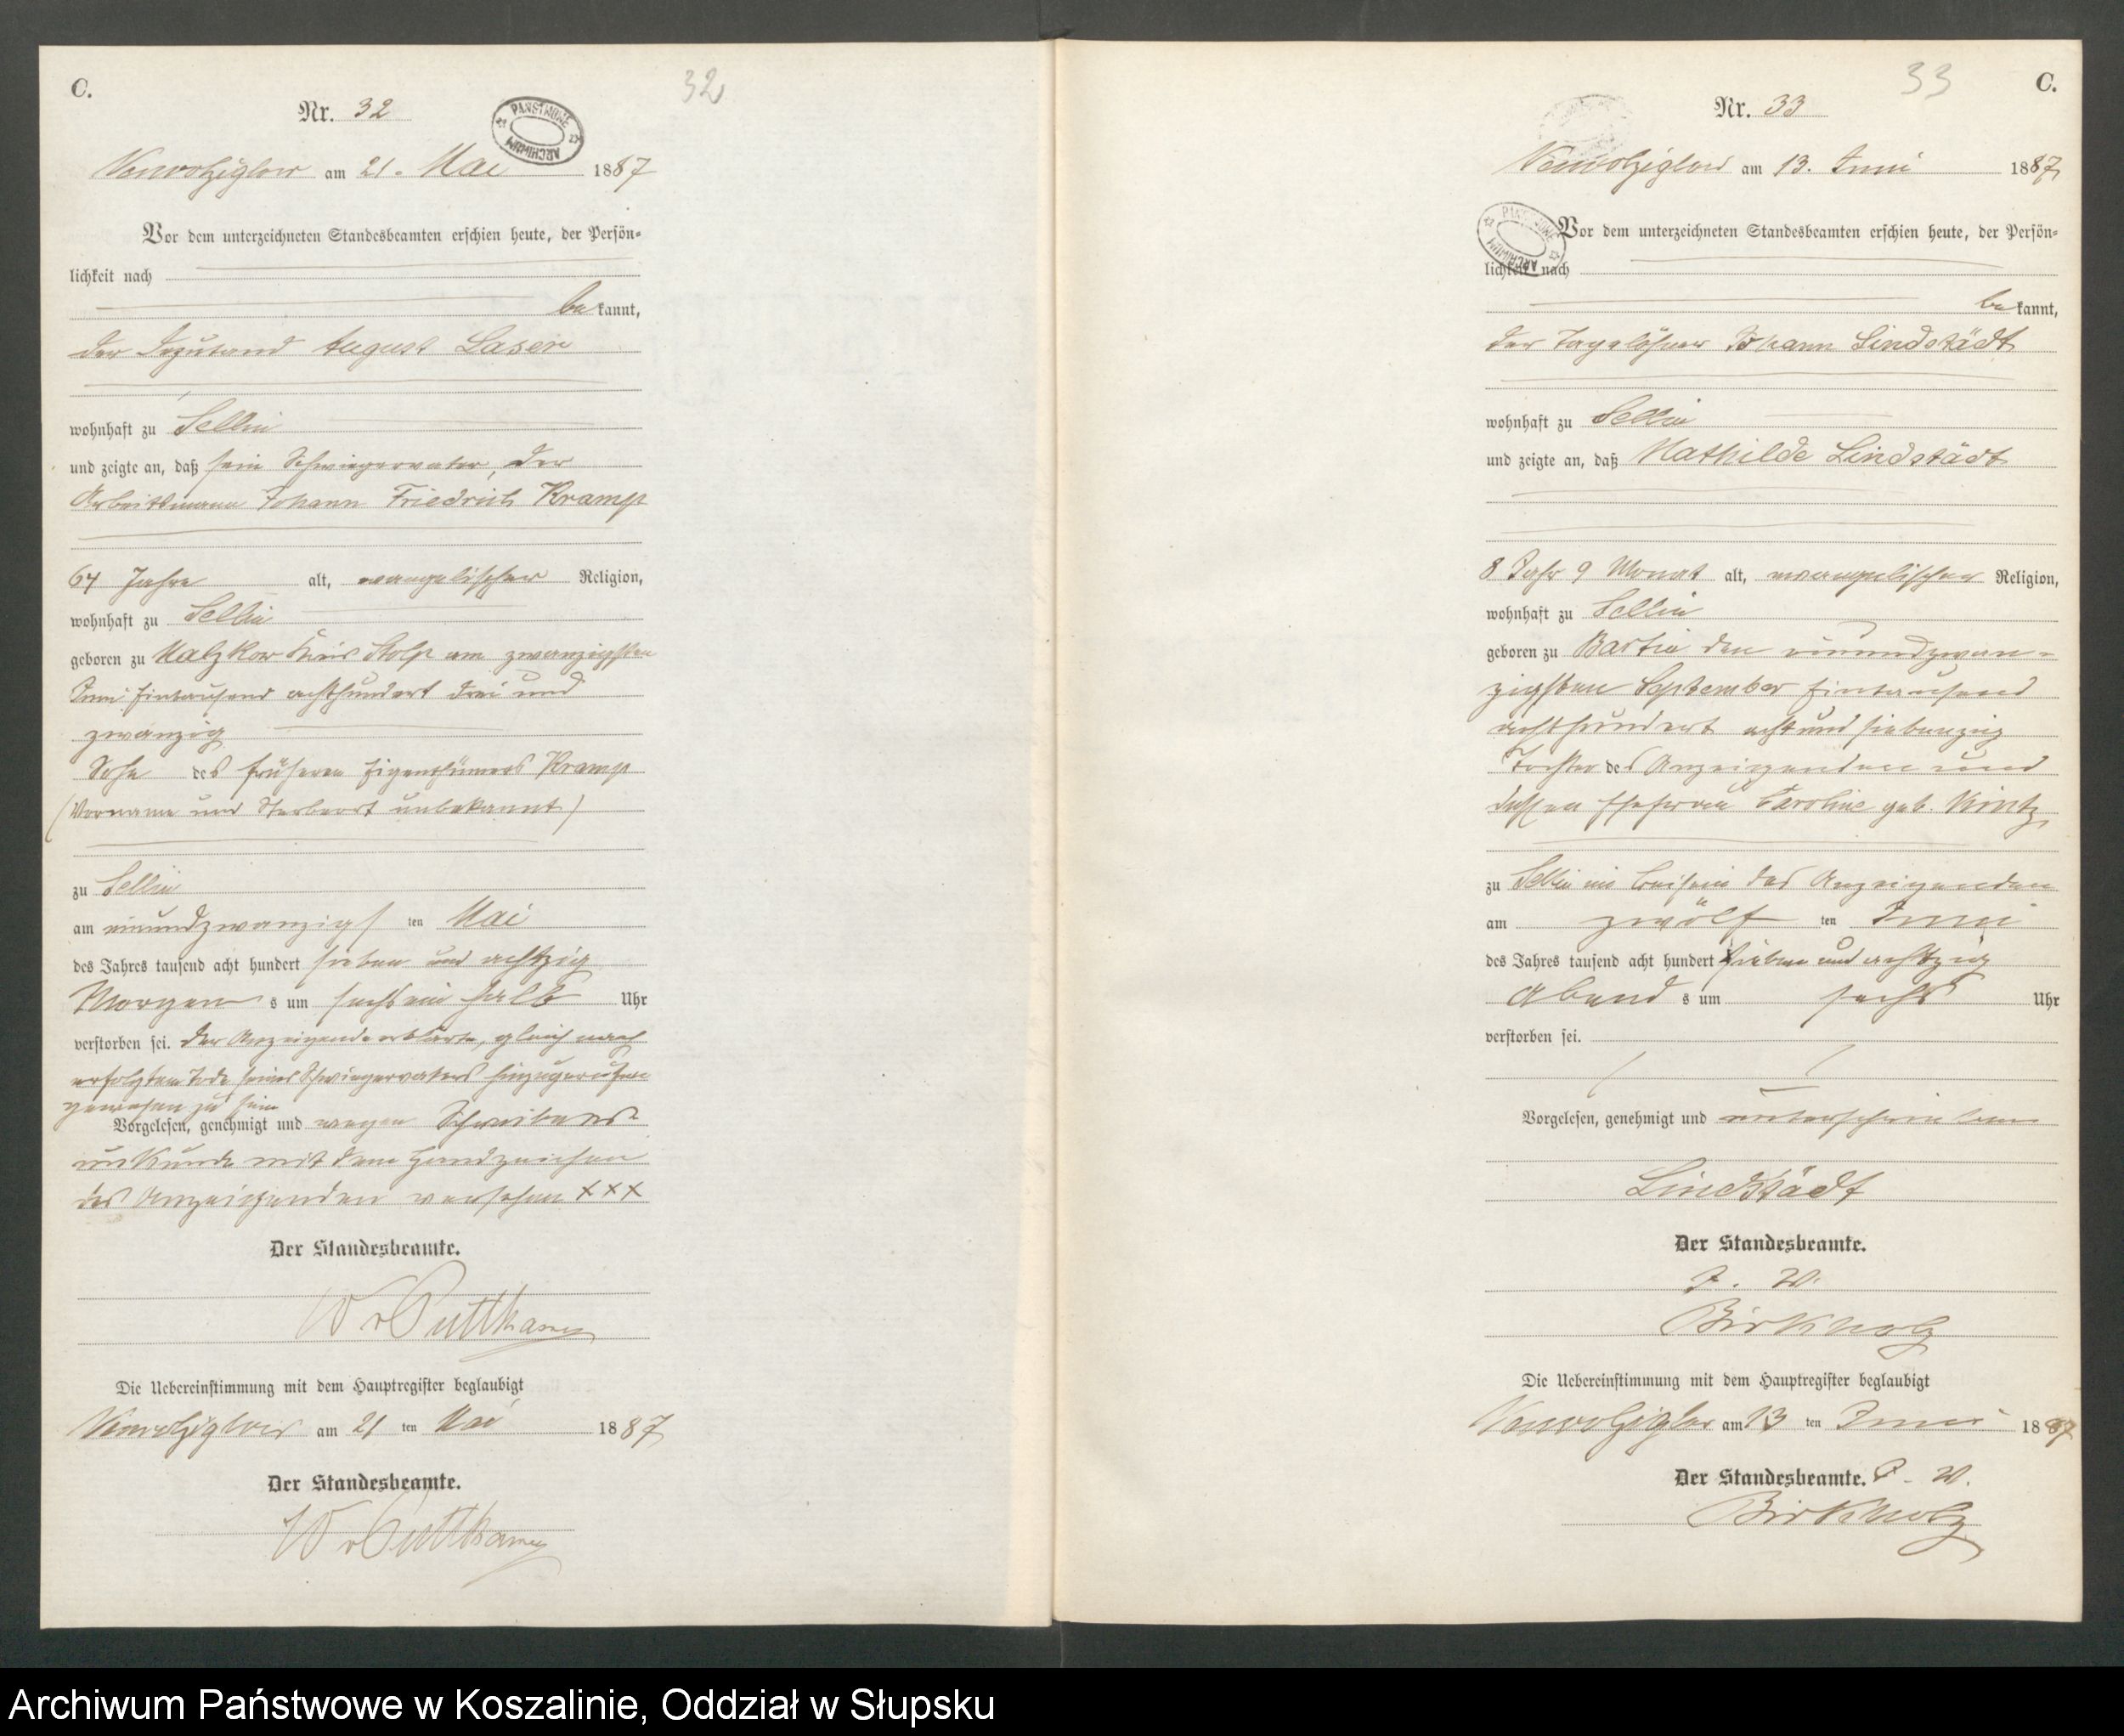 C.
32
Nr. 32
PAŃSTWOWE ARCHIWUM
am 21. Mai 1887
Vor dem unterzeichneten Standesbeamten erschien heute, der Persön-
lichkeit nach
bekannt,
der August
wohnhaft zu Sellin
und zeigte an, daß sein Schwiegervater, der
Arbeitsmann Johann Friedrich Kramp
64 Jahre alt, evangelischer Religion,
wohnhaft zu Sellin
geboren zu Malzkow Kreis Stolp am zwanzigsten
Juni Eintausend achthundert drei und
zwanzig
Sohn des früheren Eigenthümers Kramp
(Vorname und Sterbeort unbekannt)
zu Sellin
am einundzwanzigsten Mai
des Jahres tausend acht hundert sieben und achtzig
Morgens um sechs ein halb Uhr
verstorben sei. Der Anzeigende erklärte, gleich nach
erfolgtem Tode seines Schwiegervaters hinzugerufen
gewesen zu sein
Vorgelesen, genehmigt und wegen Schreibens-
unkunde mit dem Handzeichen
des Anzeigenden versehen XXX
Der Standesbeamte.
W v Puttkamer
Die Uebereinstimmung mit dem Hauptregister beglaubigt
am 21 ten Mai 1887
Der Standesbeamte.
W v Puttkamer
33
C.
Nr. 33
am 13. Juni 1887
PAŃSTWOWE ARCHIWUM
Vor dem unterzeichneten Standesbeamten erschien heute, der Persön-
lichkeit nach
bekannt,
der Tagelöhner Johann Lindstädt
wohnhaft zu Sellin
und zeigte an, daß Mathilde Lindstädt
8 Jahr 9 Monat alt, evangelischer Religion,
wohnhaft zu Sellin
geboren zu Bartin den einundzwan-
zigsten September Eintausend
achthundert acht und siebenzig
Tochter des Anzeigenden und
dessen Ehefrau Caroline geb.
zu Sellin im Beisein des Anzeigenden
am zwölften Juni
des Jahres tausend acht hundert sieben und achtzig
Abends um sechs Uhr
verstorben sei.
Vorgelesen, genehmigt und unterschrieben
Lindstädt
Der Standesbeamte.
J. V.
Birkholz
Die Uebereinstimmung mit dem Hauptregister beglaubigt
am 13 ten Juni 1887
Der Standesbeamte. J. V.
Birkholz
Archiwum Państwowe w Koszalinie, Oddział w Słupsku